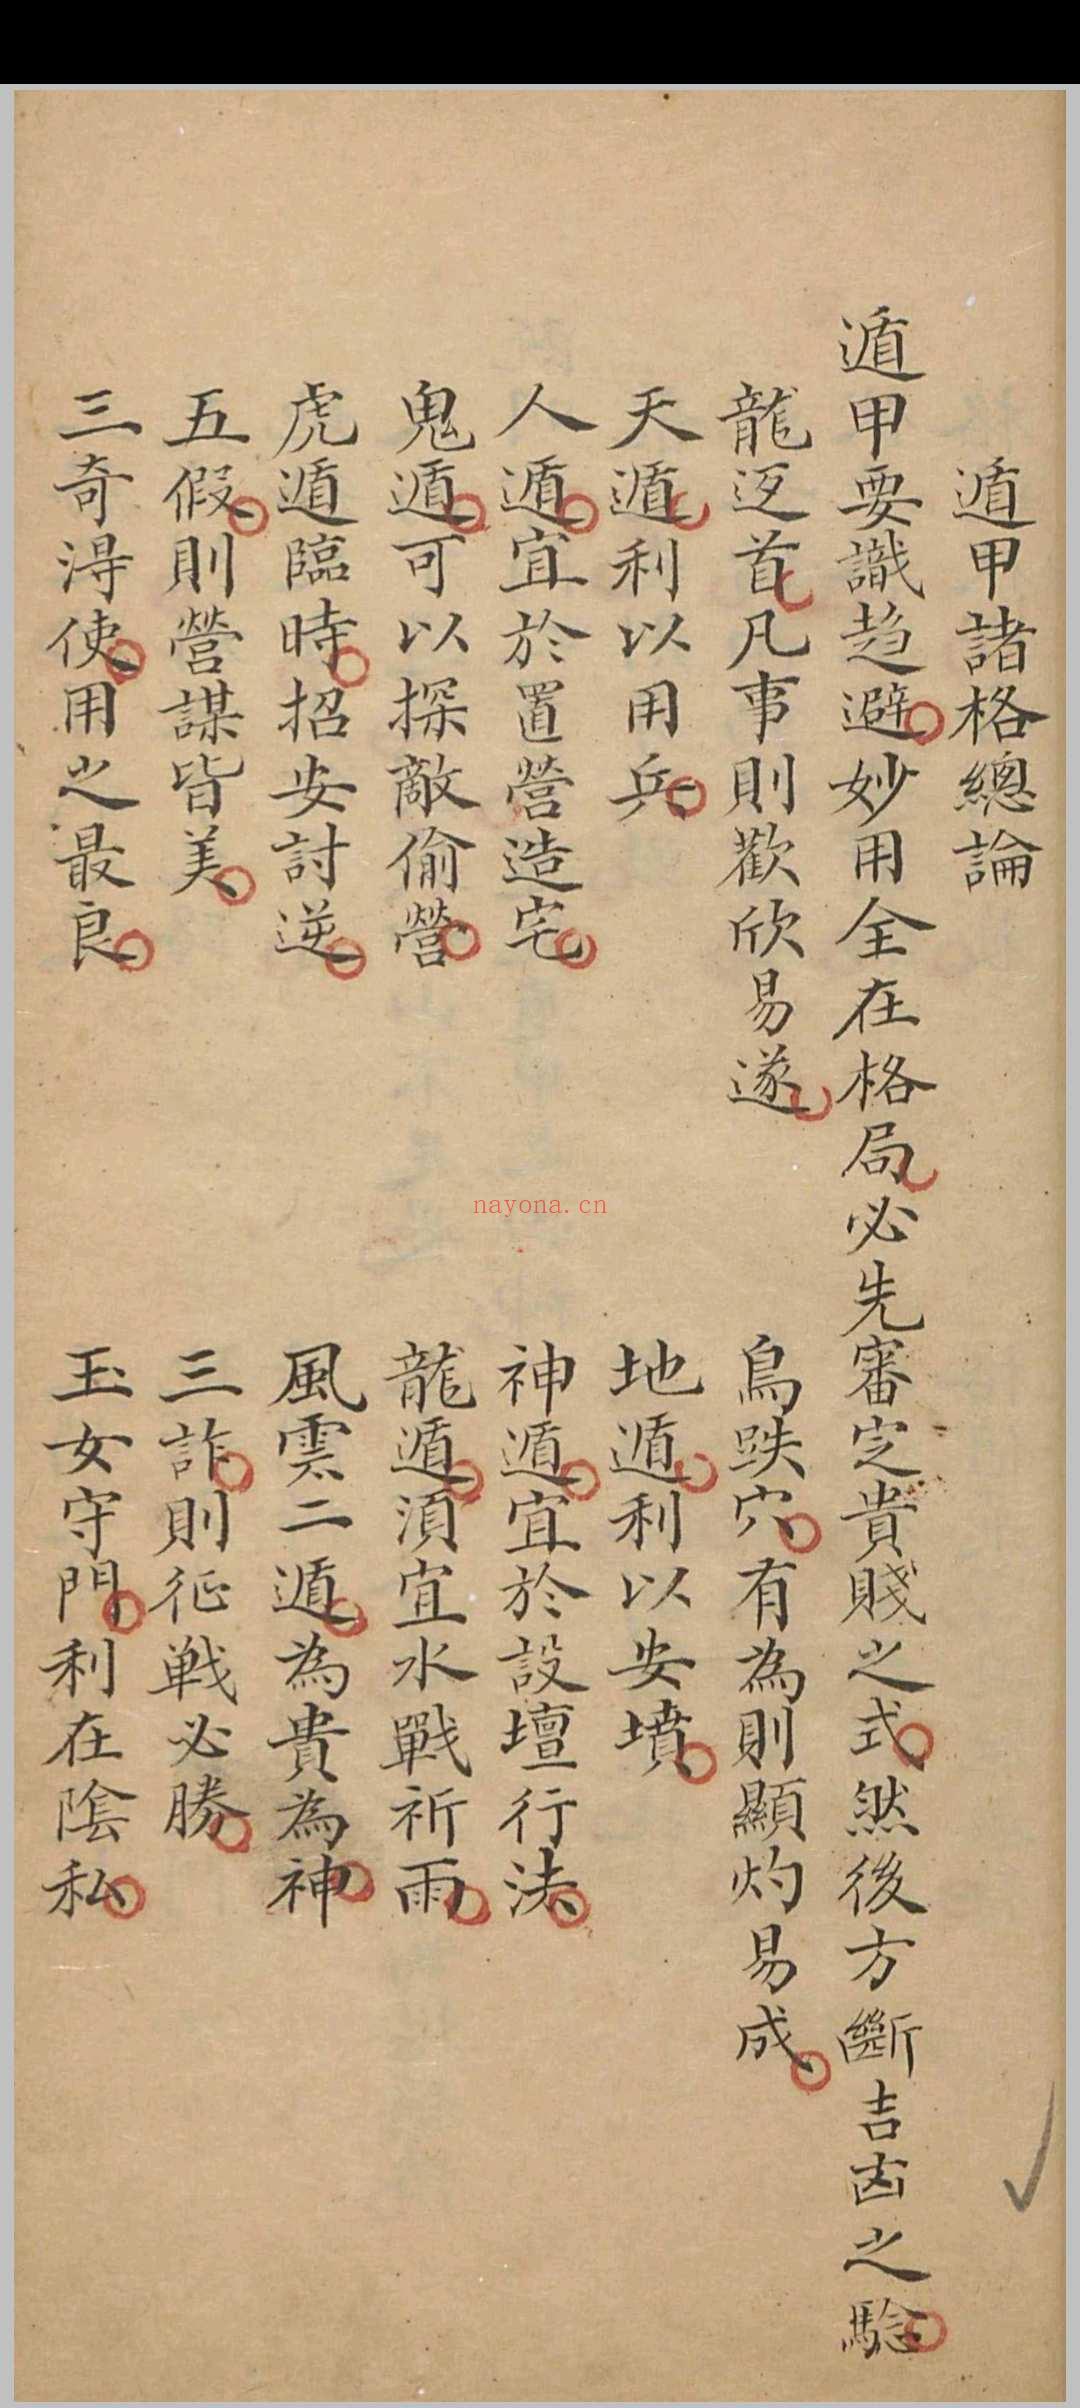 遁甲諸格總論
遁甲要識趋避妙用全在格局必先審定貴賤之式然後方斷吉㐫之騐
龍迈首凡事則歡欣易遂 鳥跌穴有為則顯灼易成
天遁利以用兵 地遁利以安墳
人遁宜於置營造宅 神遁宜於設壇行法
鬼遁可以探敵偷營 龍遁湏宜水戰祈雨
虎遁臨時招安討逆 風雲二遁為貴為神
五假則營謀皆美 三詐則征戦必勝
三奇淂使用之最良 玉女守門利在隂私
nayona.cn